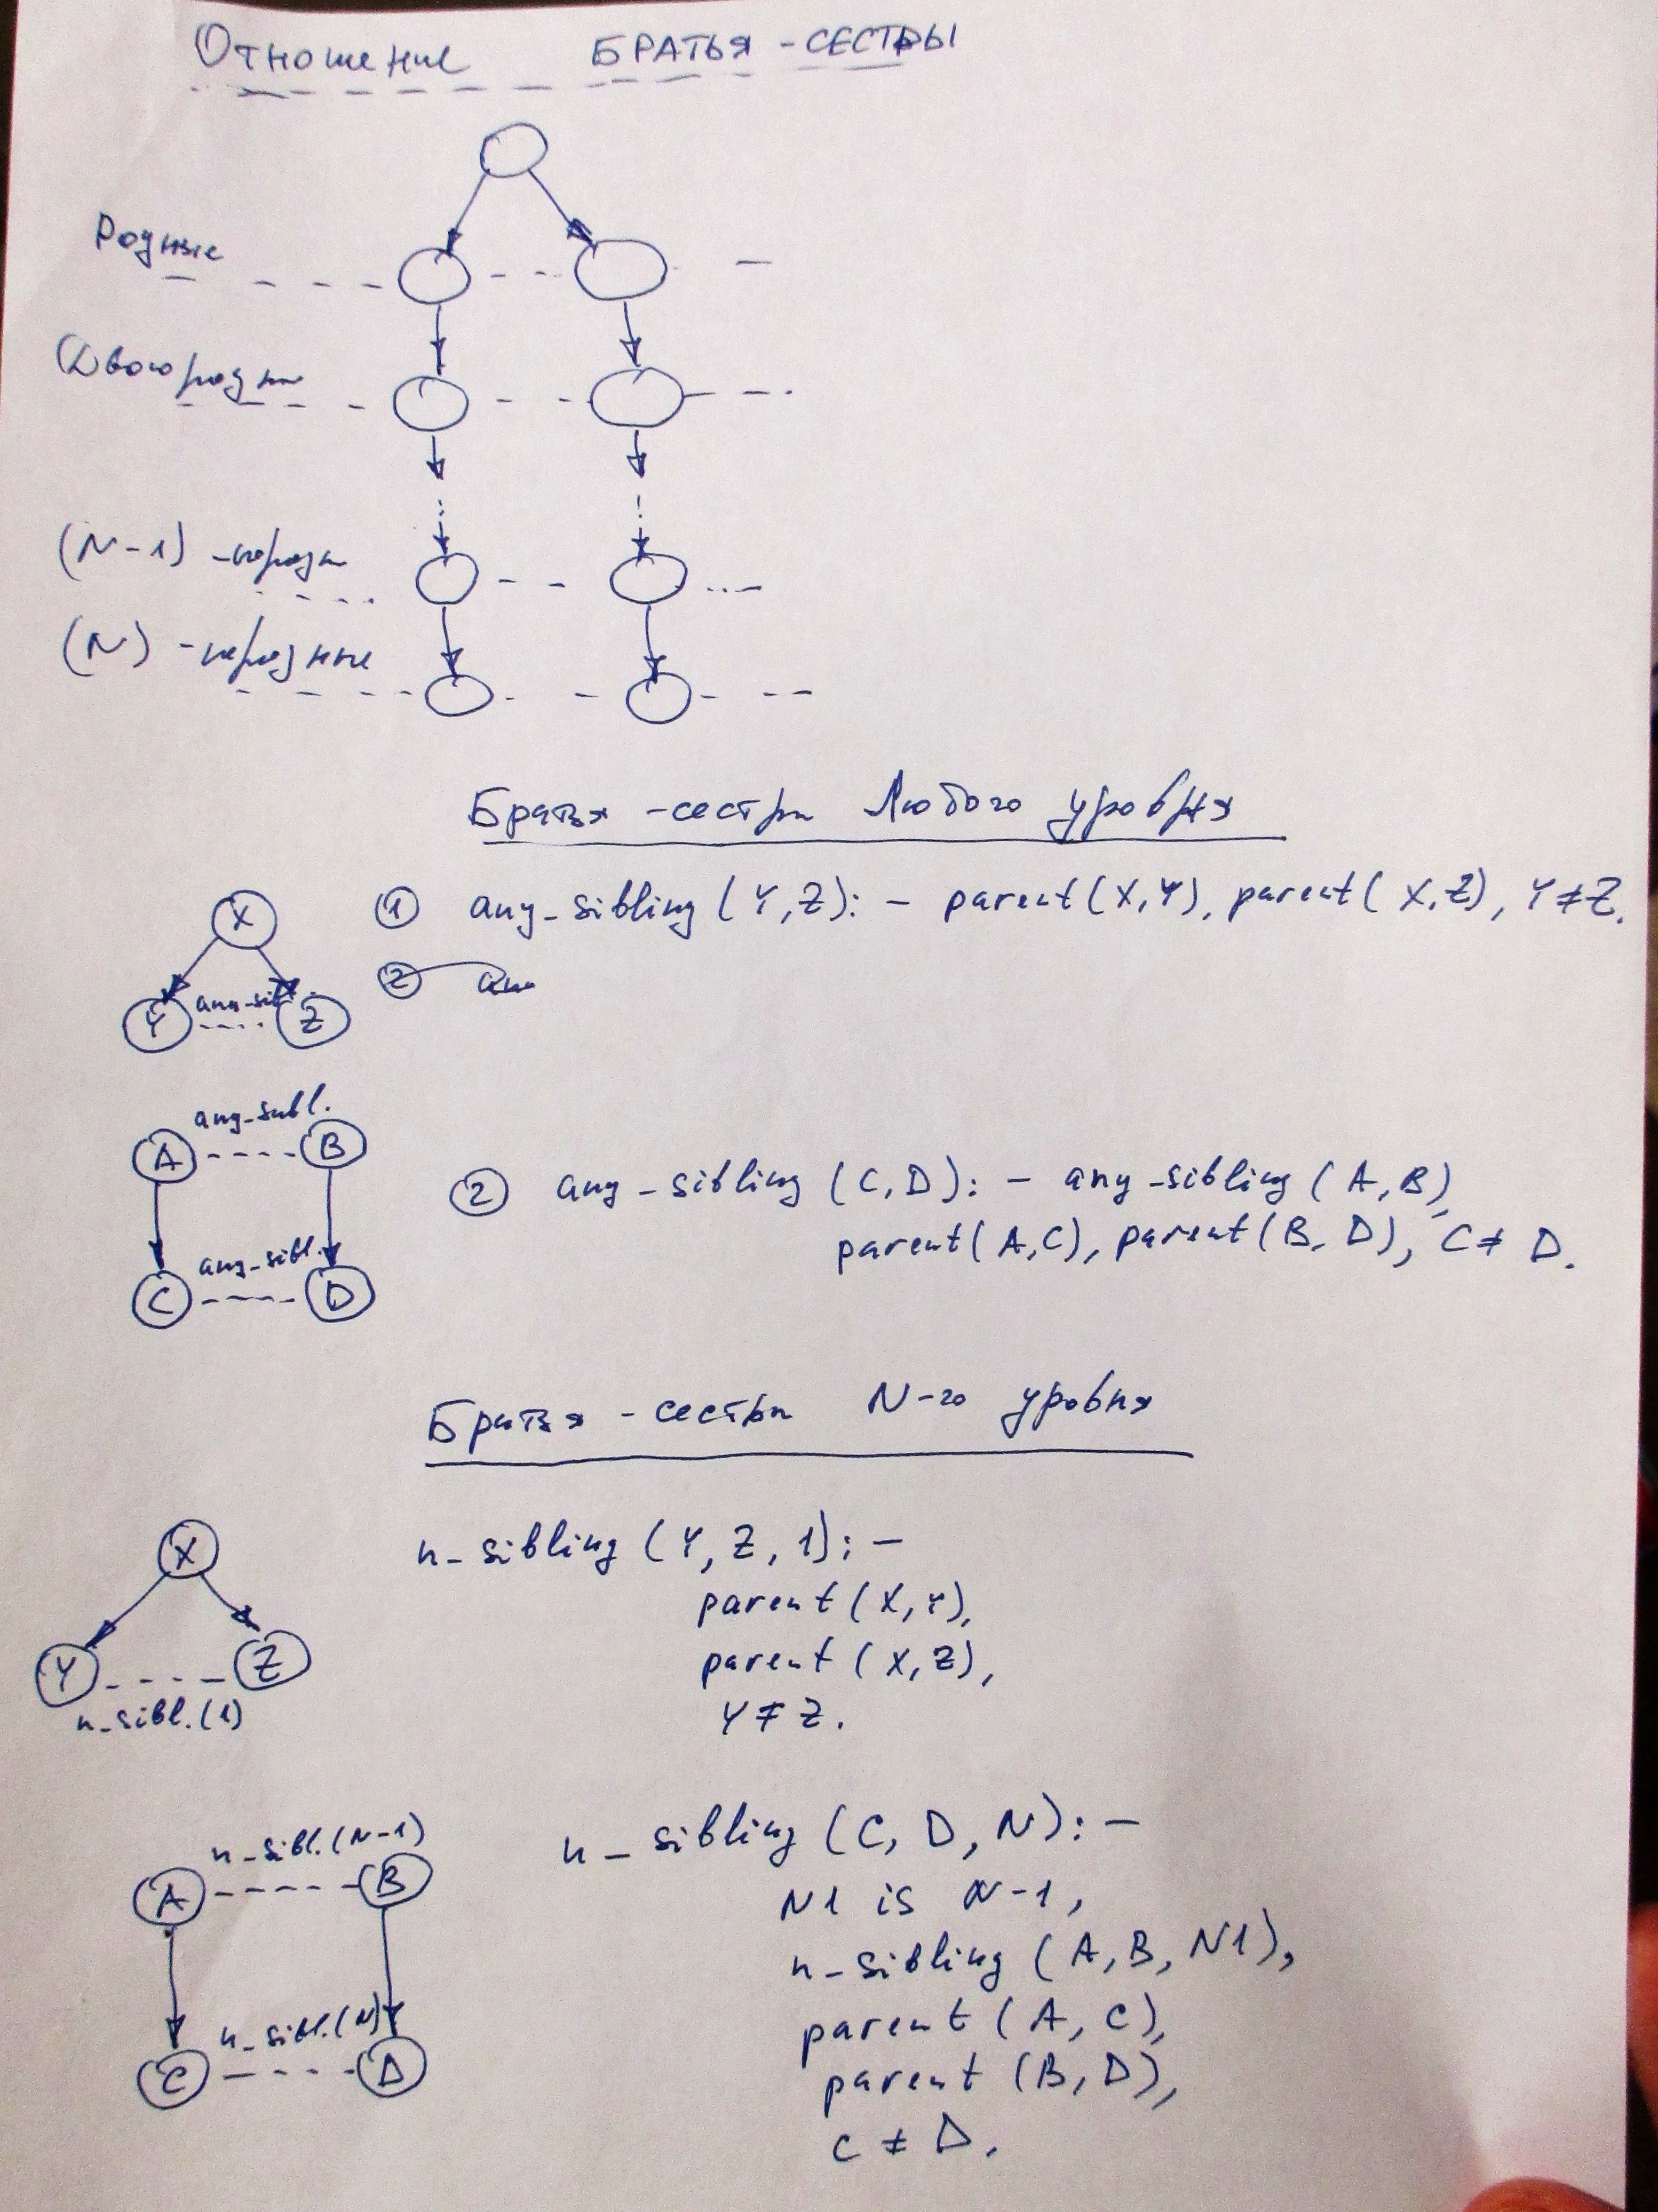 Отношение БРАТЬЯ-СЕСТРЫ
Родные
Двоюродн
(N-1) -юродн
(N) -юродные
Братья-сестры Любого уровня
X
Y any-sib. Z
① any_sibling (Y,Z):- parent(X,Y), parent(X,Z), Y≠Z.
② any
any-subl.
A B
any-sibl.
C D
② any_sibling (C,D):- any-sibling (A,B),
parent(A,C), parent(B,D), C≠D.
Братья-сестры N-го уровня
X
Y Z
n_sibl.(1)
n_sibling (Y, Z, 1):-
parent (X,Y),
parent (X,Z),
Y≠Z.
n_sibl.(N-1)
A B
n_sibl.(N)
C D
n_sibling (C, D, N):-
N1 is N-1,
n-sibling (A,B,N1),
parent (A,C),
parent (B,D),
C≠D.